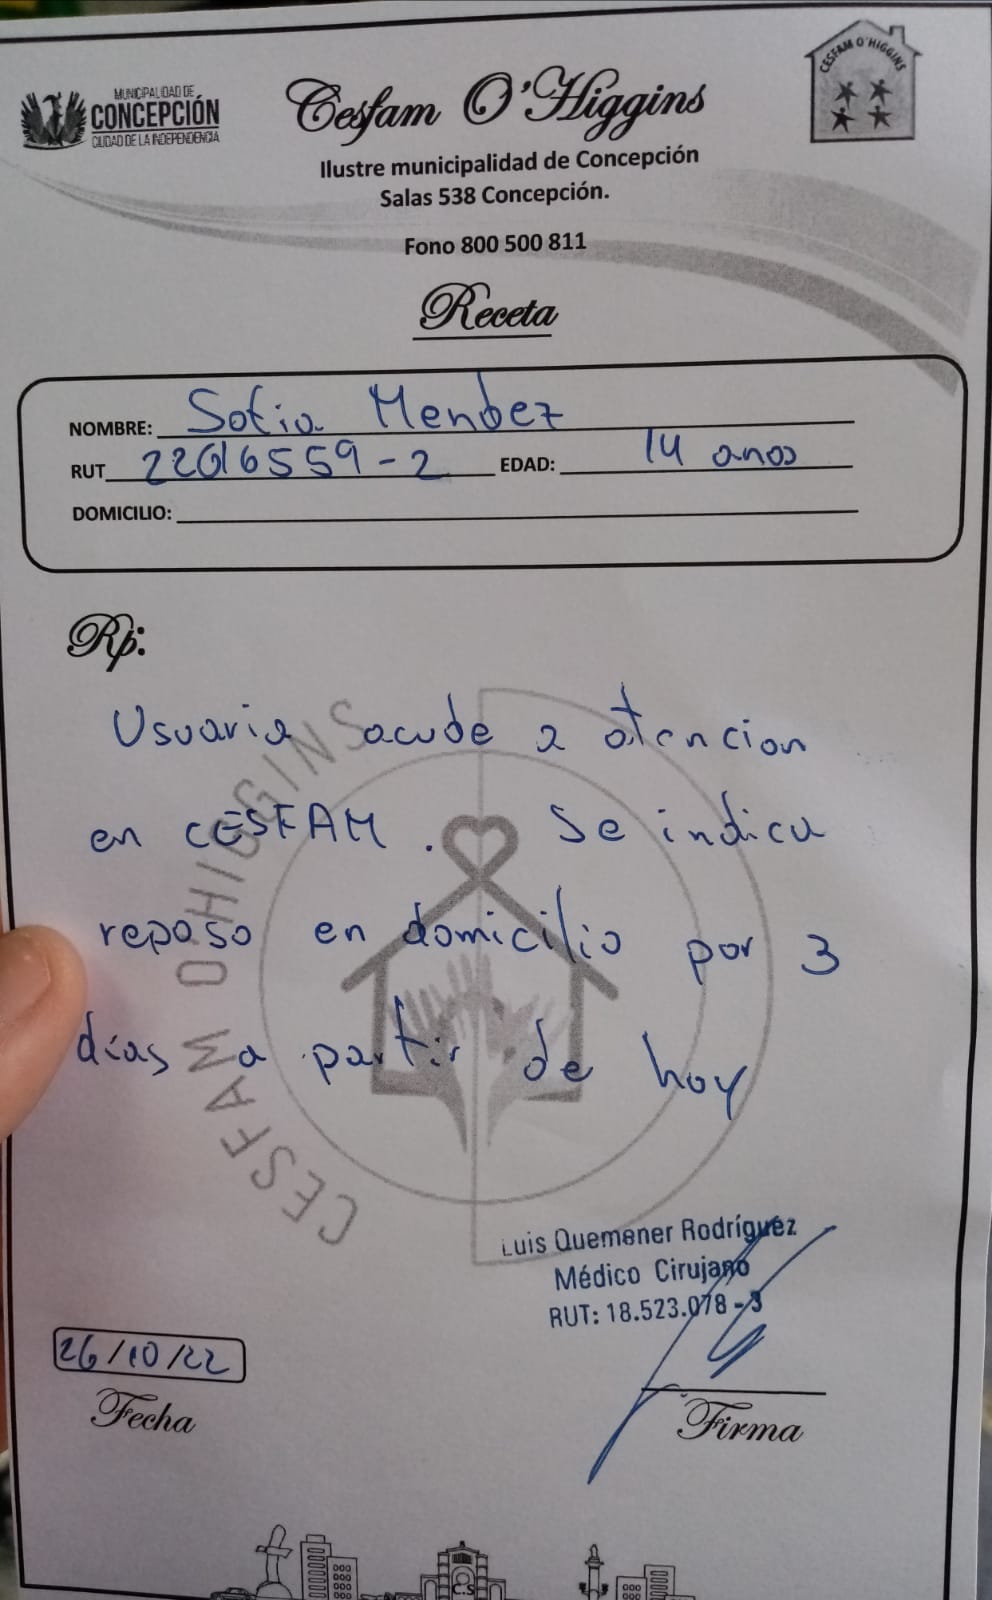 MUNICIPALIDAD DE
CONCEPCIÓN
CIUDAD DE LA INDEPENDENCIA
Cesfam O'Higgins
CESFAM O'HIGGINS
Ilustre municipalidad de Concepción
Salas 538 Concepción.
Fono 800 500 811
Receta
NOMBRE: Sofia Mendez
RUT 22616559-2 EDAD: 14 anos
DOMICILIO:
Rp:
Usuaria acude a atencion
en CESFAM. Se indica
reposo en domicilio por 3
días a partir de hoy
CESFAM OHIGGINS
Luis Quemener Rodríguez
Médico Cirujano
RUT: 18.523.078-3
26/10/22
Fecha
Firma
C.S